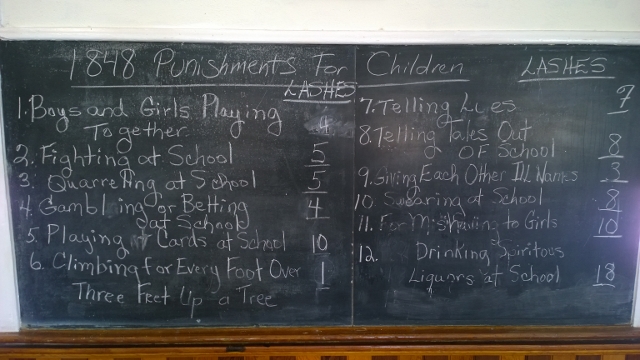 1848 Punishments For Children
LASHES
LASHES
1. Boys and Girls Playing
Together 4
2. Fighting at School 5
3. Quarreling at School 5
4. Gambling or Betting 4
at School
5. Playing Cards at School 10
6. Climbing for Every Foot Over 1
Three Feet Up a Tree
7. Telling Lies 7
8. Telling Tales Out
OF School 8
9. Giving Each Other Ill Names 3
10. Swearing at School 8
11. For Misbehaving to Girls 10
12. Drinking Spiritous
Liquors at School 18